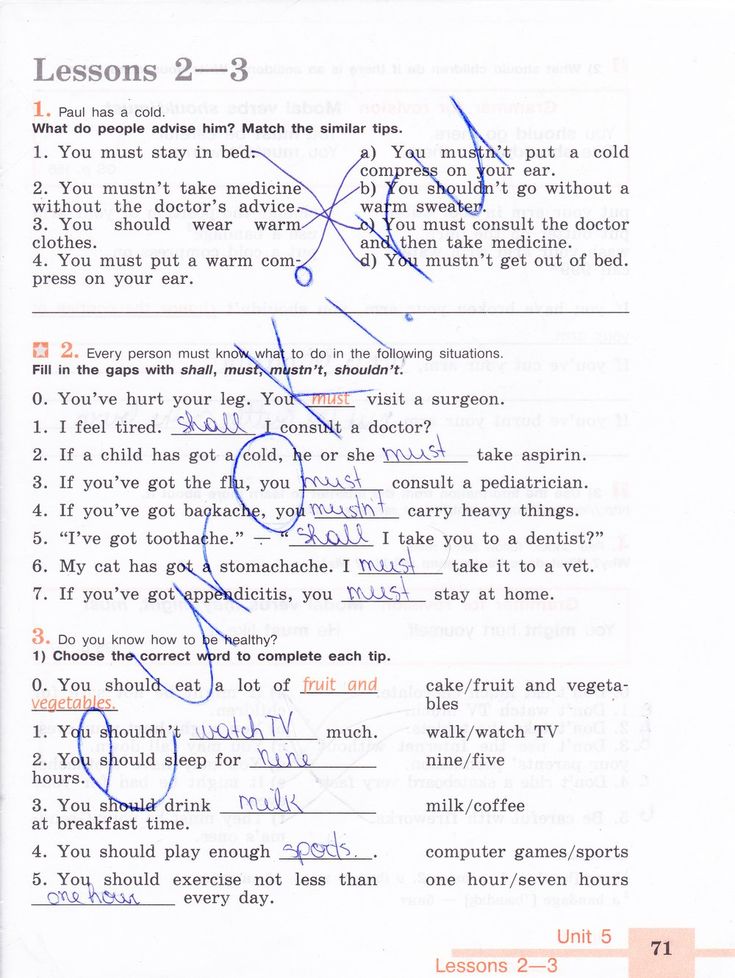 Lessons 2—3
1. Paul has a cold.
What do people advise him? Match the similar tips.
1. You must stay in bed.
2. You mustn't take medicine
without the doctor's advice.
3. You should wear warm
clothes.
4. You must put a warm com-
press on your ear.
a) You mustn't put a cold
compress on your ear.
b) You shouldn't go without a
warm sweater.
c) You must consult the doctor
and then take medicine.
d) You mustn't get out of bed.
2. Every person must know what to do in the following situations.
Fill in the gaps with shall, must, mustn't, shouldn't.
0. You've hurt your leg. You must visit a surgeon.
1. I feel tired. shall I consult a doctor?
2. If a child has got a cold, he or she must take aspirin.
3. If you've got the flu, you must consult a pediatrician.
4. If you've got backache, you mustn't carry heavy things.
5. “I've got toothache.” — “shall I take you to a dentist?”
6. My cat has got a stomachache. I must take it to a vet.
7. If you've got appendicitis, you must stay at home.
3. Do you know how to be healthy?
1) Choose the correct word to complete each tip.
0. You should eat a lot of fruit and
vegetables.
cake/fruit and vegeta-
bles
1. You shouldn't watch TV much.
walk/watch TV
2. You should sleep for nine
hours.
nine/five
3. You should drink milk
at breakfast time.
milk/coffee
4. You should play enough spods.
computer games/sports
5. You should exercise not less than
one hour every day.
one hour/seven hours
Unit 5
Lessons 2—3
71